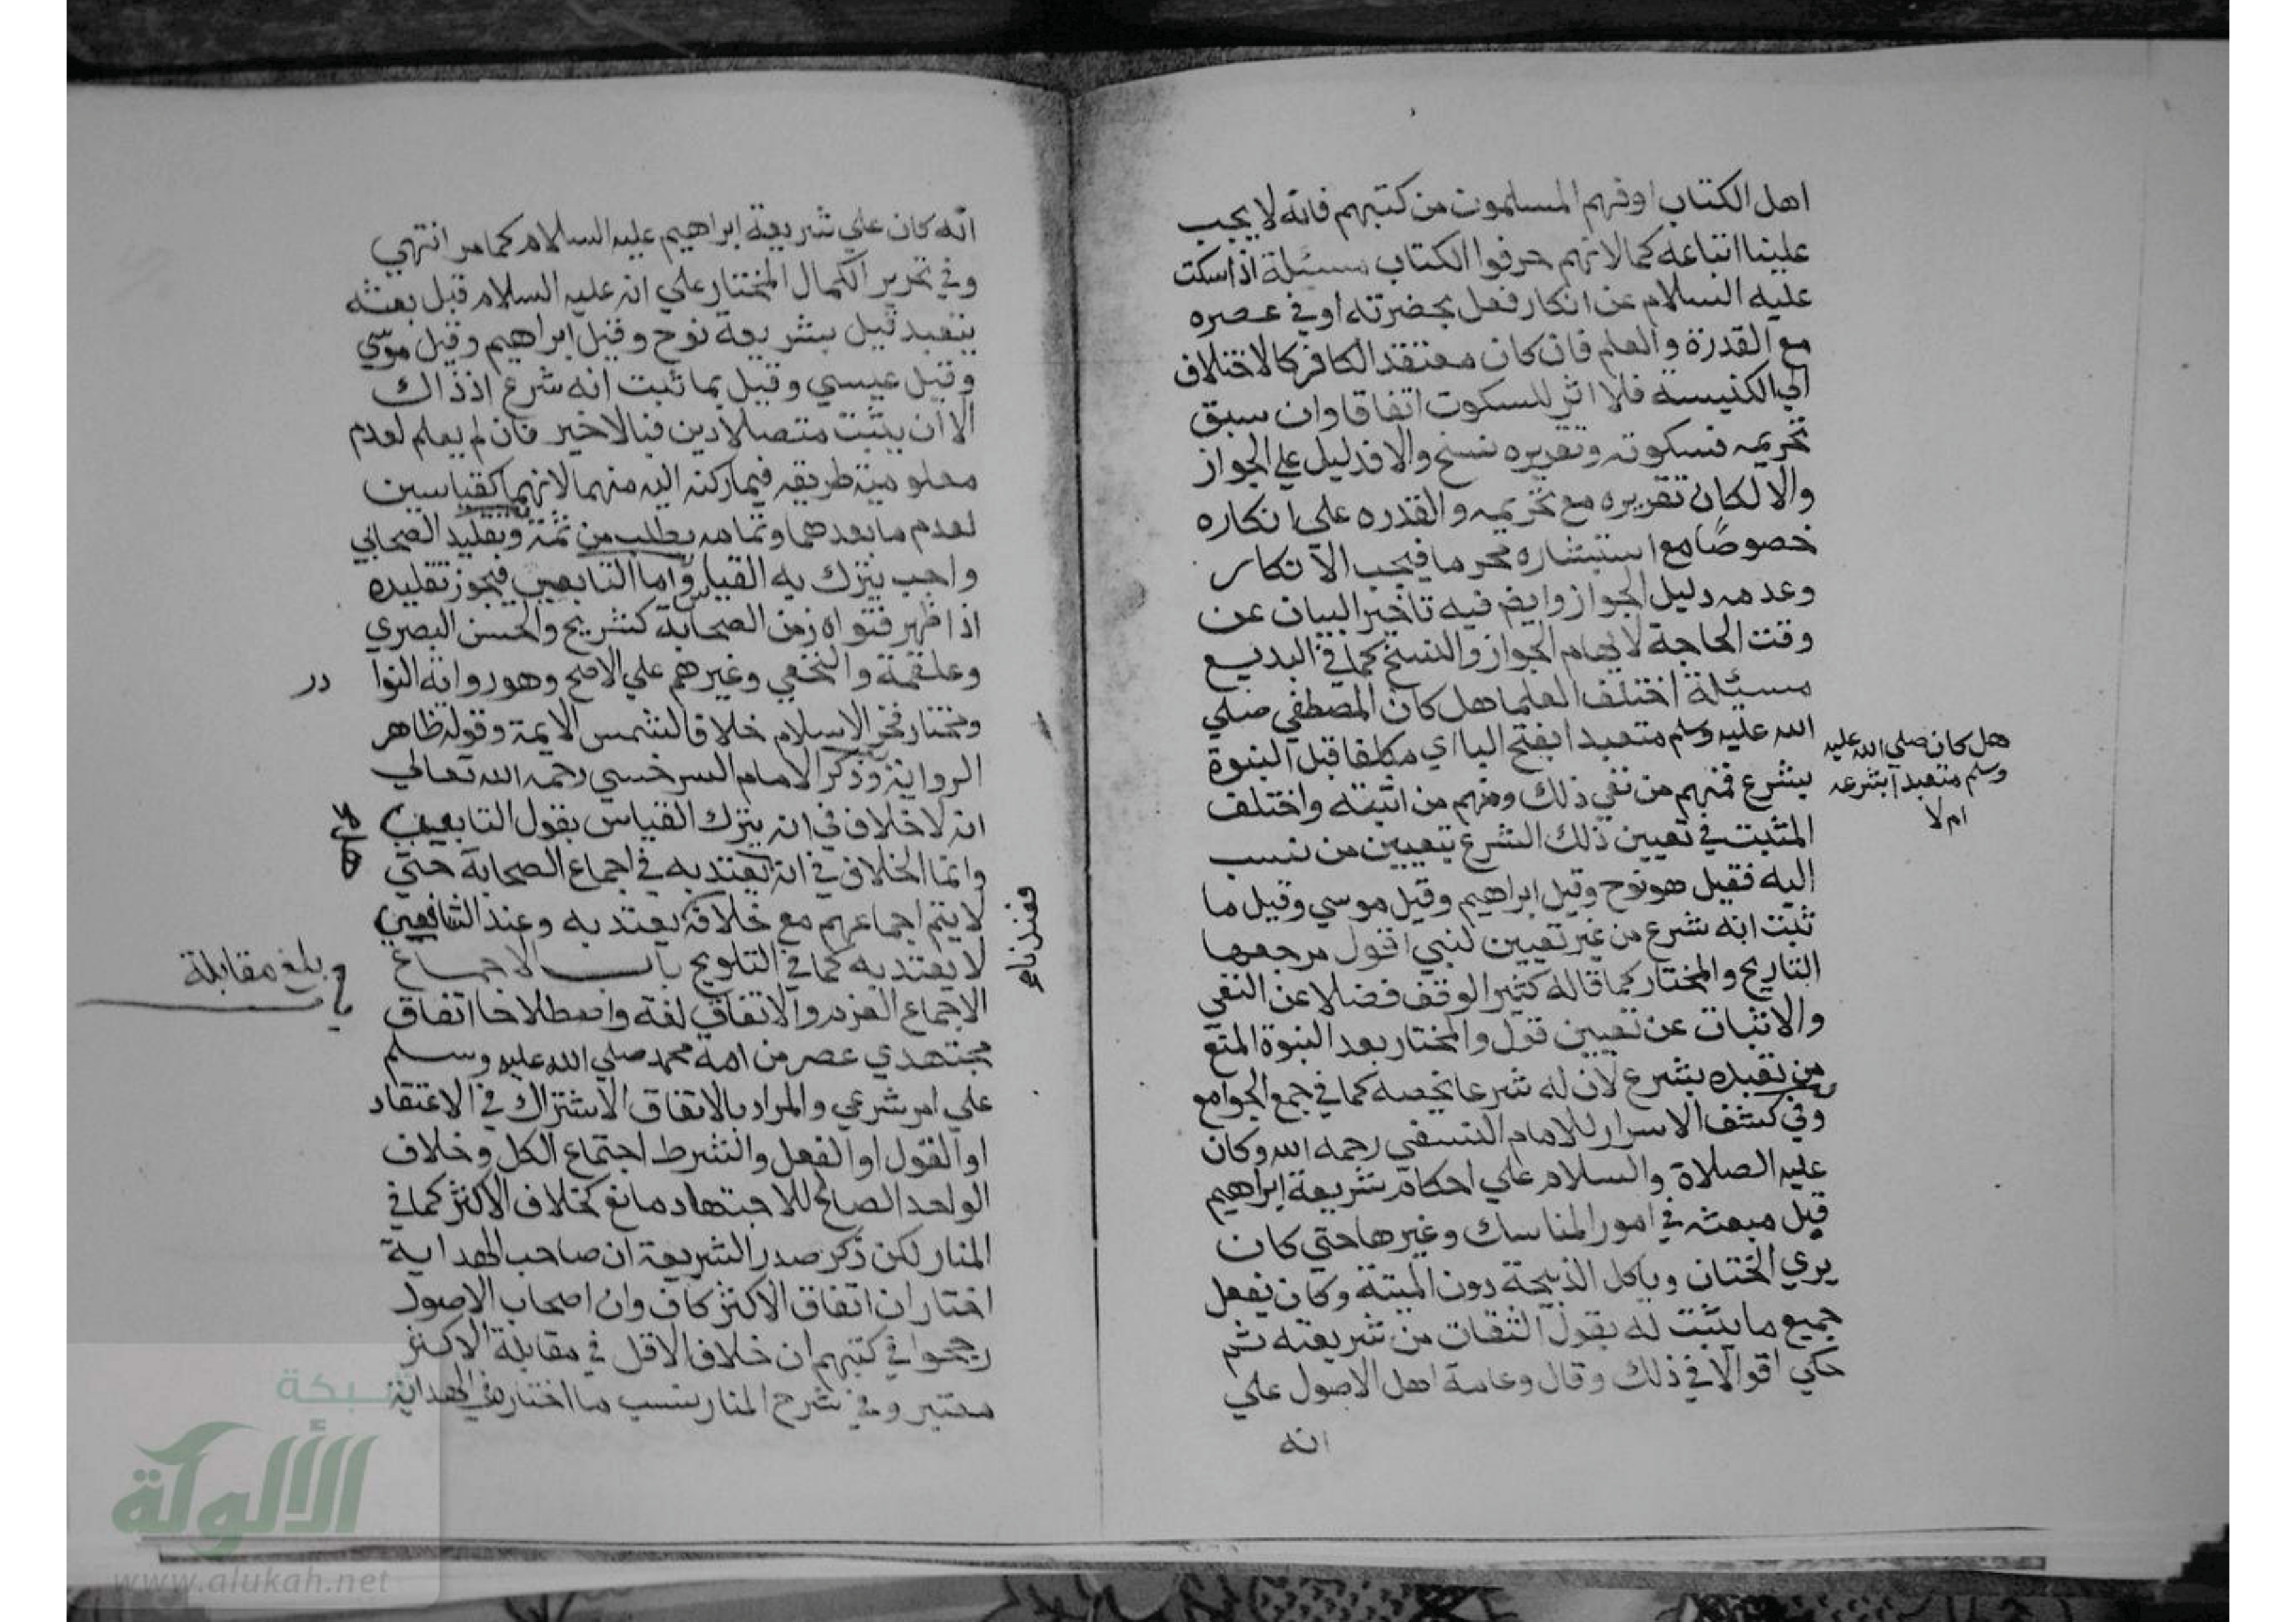 اهل الكتاب اوفهم المسلمون من كتبهم فانه لا يجب
علينا اتباعه كما لانهم حرفوا الكتاب مسئلة اذا سكت
عليه السلام عن انكار فعل بحضرته او في عصره
مع القدرة والعلم فان كان معتقد الكافر كالاختلاف
الي الكنيسه فلا اثر للسكوت اتفاقا وان سبق
تحريمه فسكوته وتقريره نسخ والا فدليل علي الجواز
والا لكان تقريره مع تحريمه والقدره علي انكاره
خصوصًا مع استبشاره محرما فيجب الانكار
وعدمه دليل الجواز وايض فيه تاخير البيان عن
وقت الحاجة لايهام الجواز والنسخ كما في البديع
مسئلة اختلف العلما هل كان المصطفي صلي
الله عليه وسلم متعبدا بفتح البا اي مكلفا قبل النبوة
بشرع فمنهم من نفي ذلك ومنهم من اثبته واختلف
المثبت في تعيين ذلك الشرع بتعيين من نسب
اليه فقيل هو نوح وقيل ابراهيم وقيل موسي وقيل ما
ثبت انه شرع من غير تعيين لنبي اقول مرجعها
التاريخ والمختار كما قاله كثير الوقف فضلا عن النفي
والاثبات عن تعيين قول والمختار بعد النبوة المنع
من تعبده بشرع لان له شرعا يخصه كما في جمع الجوامع
وفي كشف الاسرار للامام النسفي رحمه الله وكان
عليه الصلاة والسلام علي احكام شريعة ابراهيم
قبل مبعثه في امور المناسك وغيرها حتي كان
يري الختان وياكل الذبيحة دون الميتة وكان يفعل
جميع ما يثبت له بقول الثقات من شريعته ثم
حكي اقوالا في ذلك وقال وعامة اهل الاصول علي
انه
هل كان صلي الله عليه
وسلم متعبدا بشرعه
ام لا
انه كان علي شريعة ابراهيم عليه السلام كما مر انتهي
وفي تحرير الكمال المختار علي انه عليه السلام قبل بعثه
يتعبد قيل بشريعة نوح وقيل ابراهيم وقيل موسي
وقيل عيسي وقيل بما ثبت انه شرع اذ ذاك
الا ان يثبت متصلا دين فبالاخير فان لم يعلم لعدم
معلومية طريقه فيما ركنه اليه منهما لانهما كقياسين
لعدم ما بعدهما وتمامه يطلب من ثمة وتقليد الصحابي
واجب يترك به القياس واما التابعي فيجوز تقليده
اذا ظهر فتواه زمن الصحابة كشريح والحسن البصري
وعلقمة والنخعي وغيرهم علي الاصح وهو رواية النوا
در
ومختار فخر الاسلام خلافا لشمس الايمة وقوله ظاهر
الرواية وذكر الامام السرخسي رحمه الله تعالي
انه لا خلاف في انه يترك القياس بقول التابعي
وانما الخلاف في انه يعتد به في اجماع الصحابة حتي
لا يتم اجماعهم مع خلافه يعتد به وعند الشافعي
فعندنا
لا يعتد به كما في التلويح باب الاجماع
بلغ مقابلة
الاجماع العزم والاتفاق لغة واصطلاحا اتفاق
مجتهدي عصر من امة محمد صلي الله عليه وسلم
علي امر شرعي والمراد بالاتفاق الاشتراك في الاعتقاد
او القول او الفعل والشرط اجتماع الكل وخلاف
الواحد الصالح للاجتهاد مانع كخلاف الاكثر كما في
المنار لكن ذكر صدر الشريعة ان صاحب الهداية
اختار ان اتفاق الاكثر كاف وان اصحاب الاصول
رجحوا في كتبهم ان خلاف الاقل في مقابلة الاكثر
معتبر وفي شرح المنار نسب ما اختاره في الهداية
شبكة
الألوكة
www.alukah.net